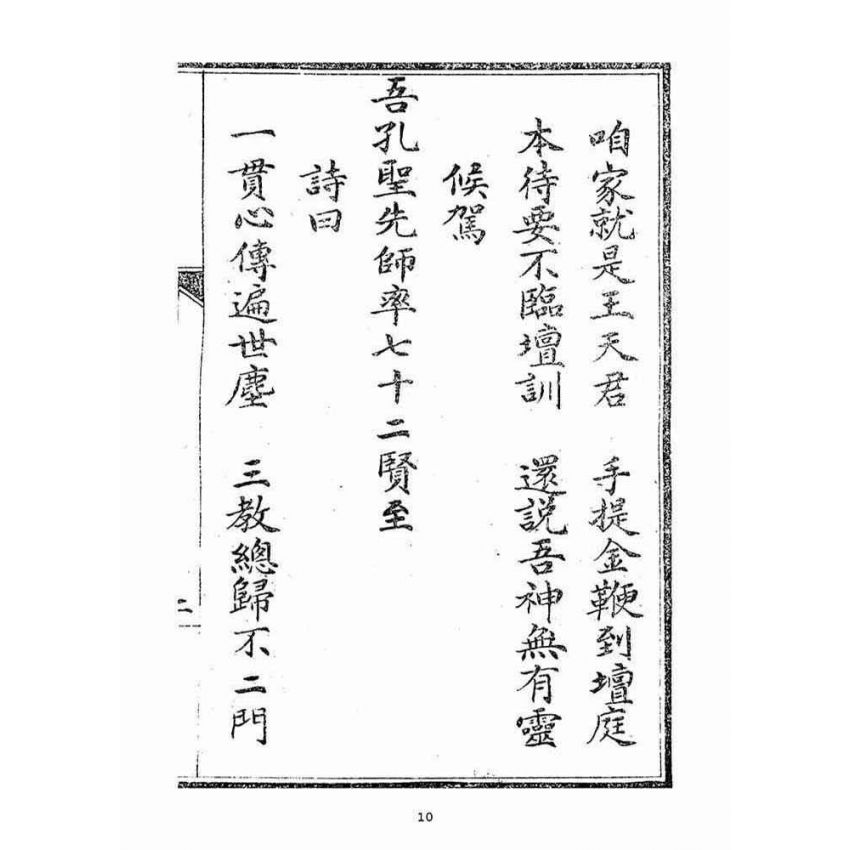 咱家就是王天君　手提金鞭到壇庭
本待要不臨壇訓　還説吾神無有靈
候駕
吾孔聖先師率七十二賢至
詩曰
一貫心傳遍世塵　三教總歸不二門
二
10